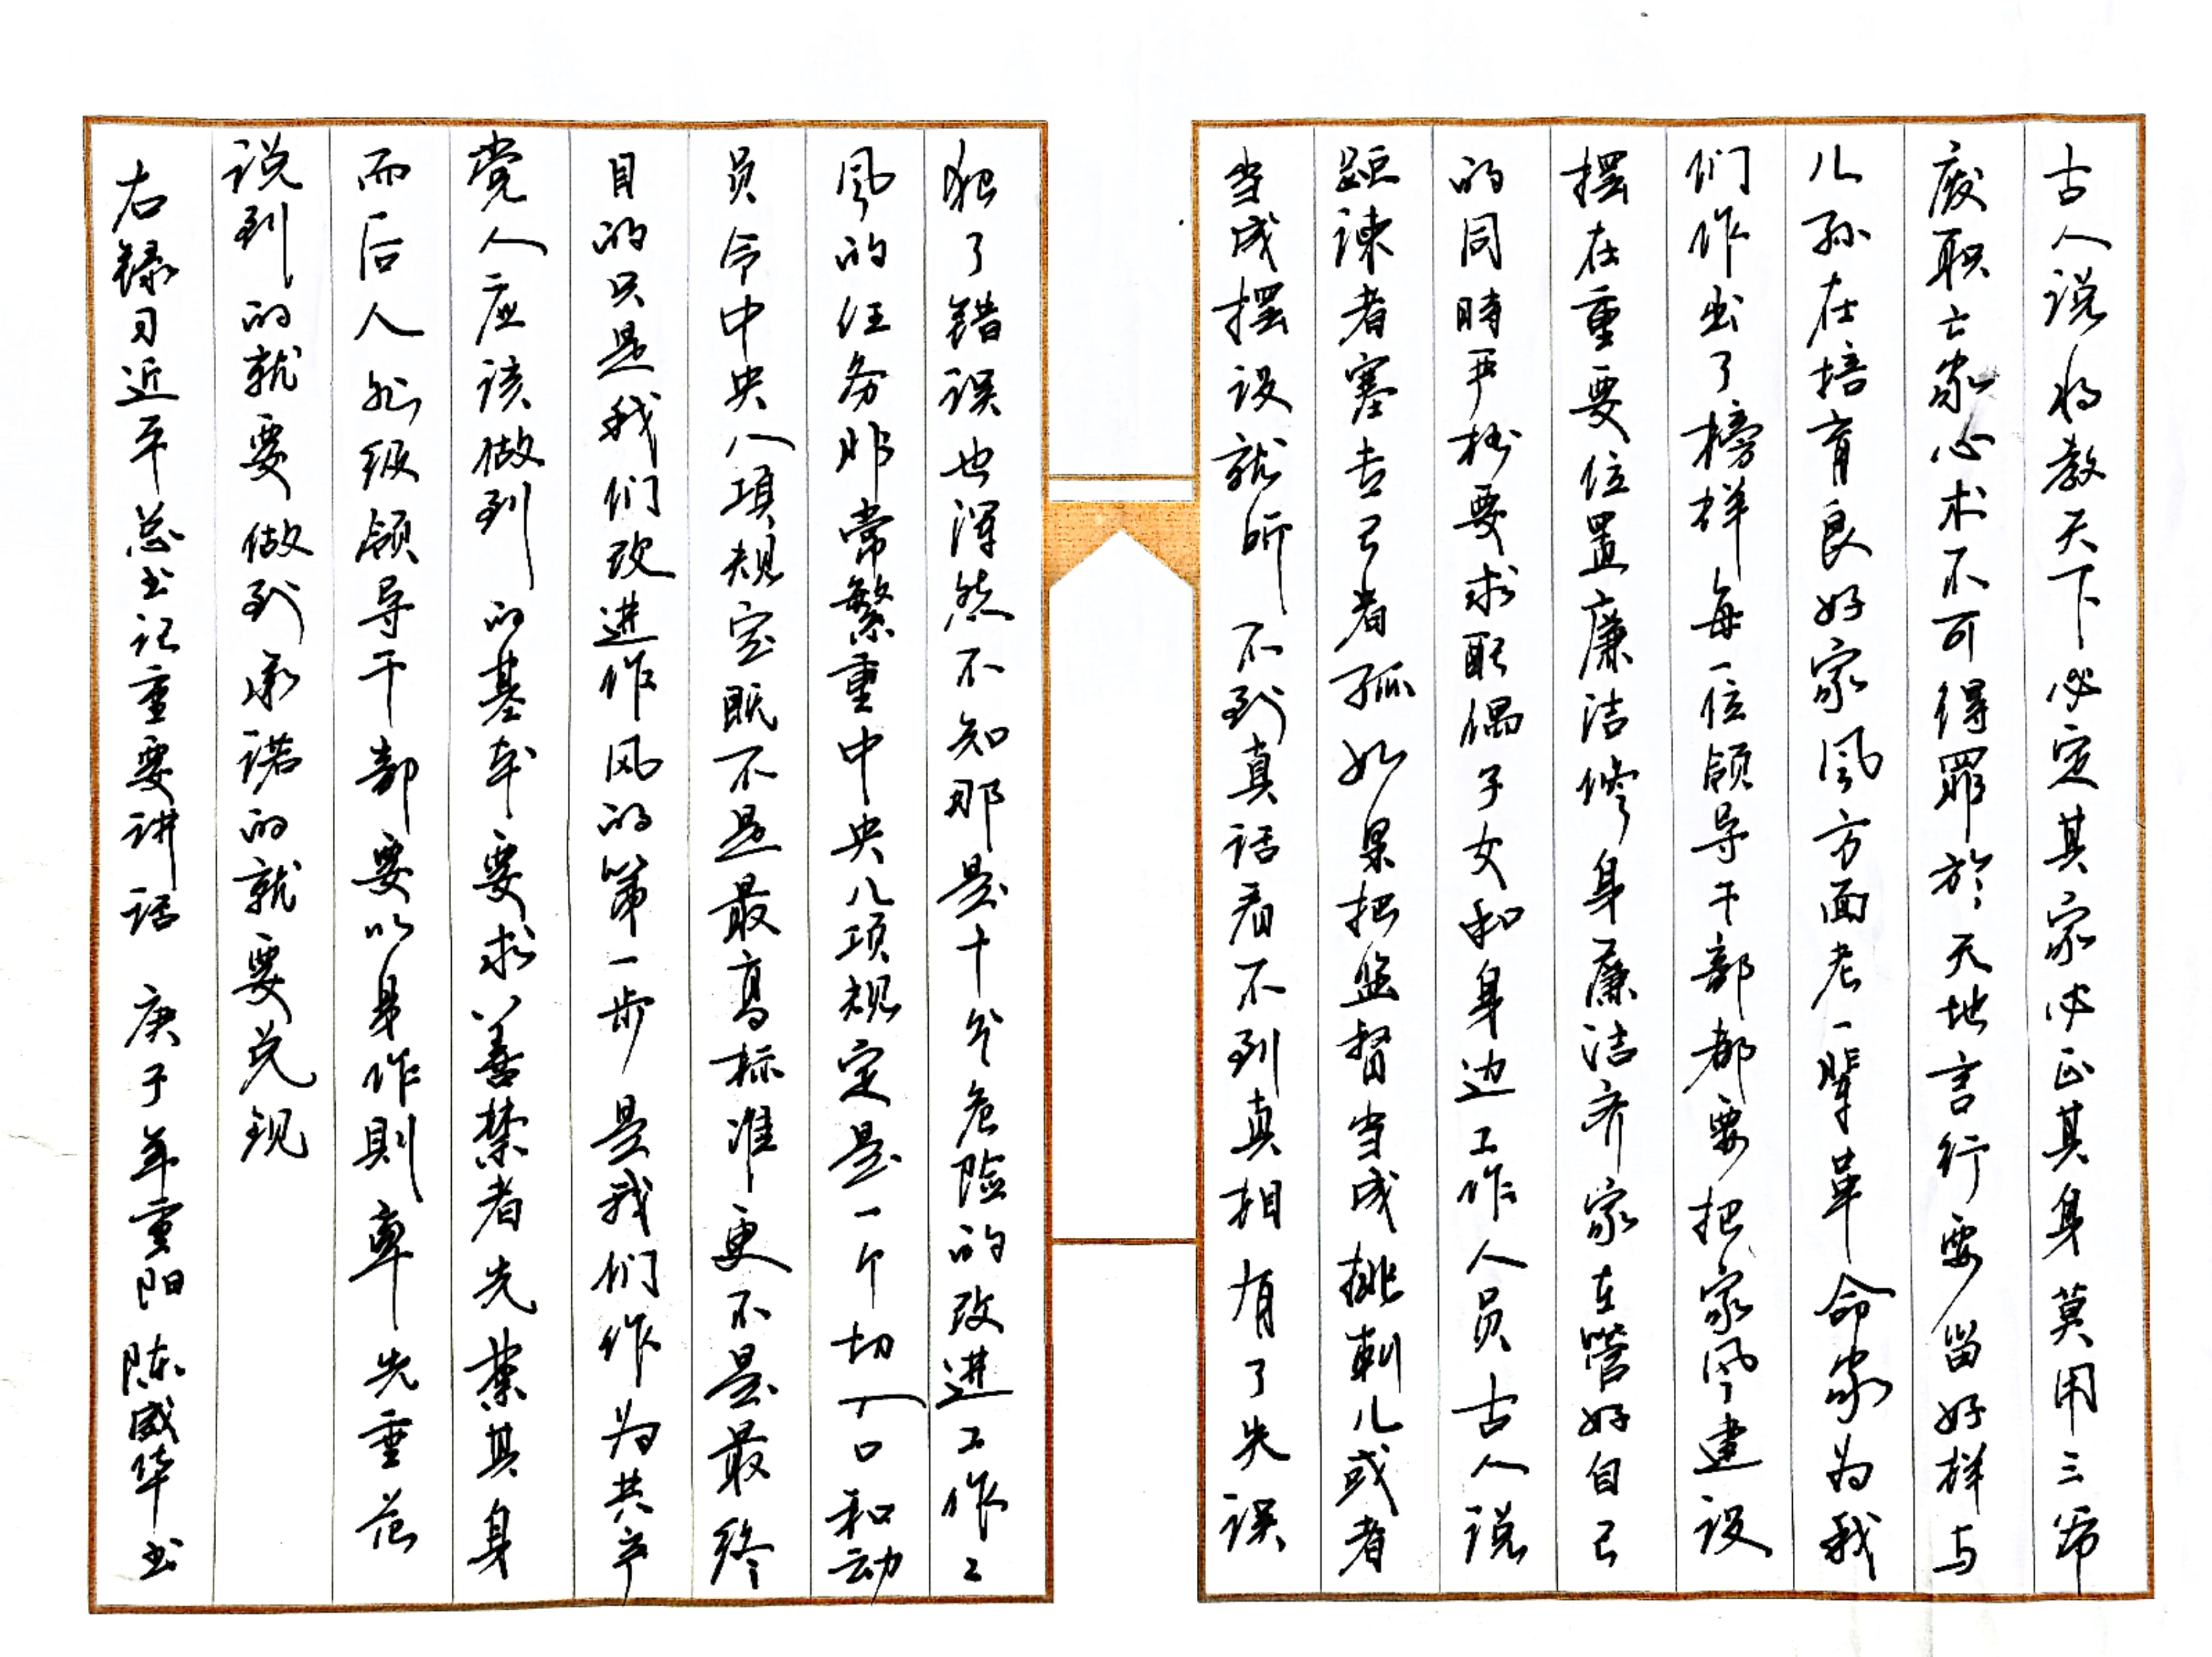 古人说将教天下必定其家必正其身莫用三爷
废职亡家心术不可得罪於天地言行要留好样与
儿孙在培育良好家风方面老一辈革命家为我
们作出了榜样每一位领导干部都要把家风建设
摆在重要位置廉洁修身廉洁齐家在管好自己
的同時严格要求配偶子女和身边工作人员古人说
距谏者塞专己者孤如果把监督当成挑刺儿或者
当成摆设就听不到真话看不到真相有了失误
犯了错误也浑然不知那是十分危险的改进工作作
风的任务非常繁重中央八项规定是一个切入口和动
员令中央八項规定既不是最高标准更不是最终
目的只是我们改进作风的第一步是我们作为共产
党人应该做到的基本要求善禁者先禁其身
而后人各级领导干部要以身作則率先垂范
说到的就要做到承诺的就要兑现
右録习近平总书记重要讲话 庚子年重阳 陈威华书